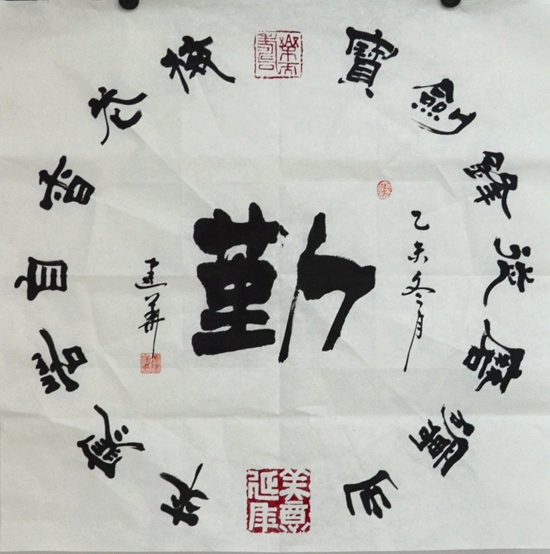 寶劍鋒從磨礪出
梅花香自苦寒來
勤
乙未冬月
建華
美意延年